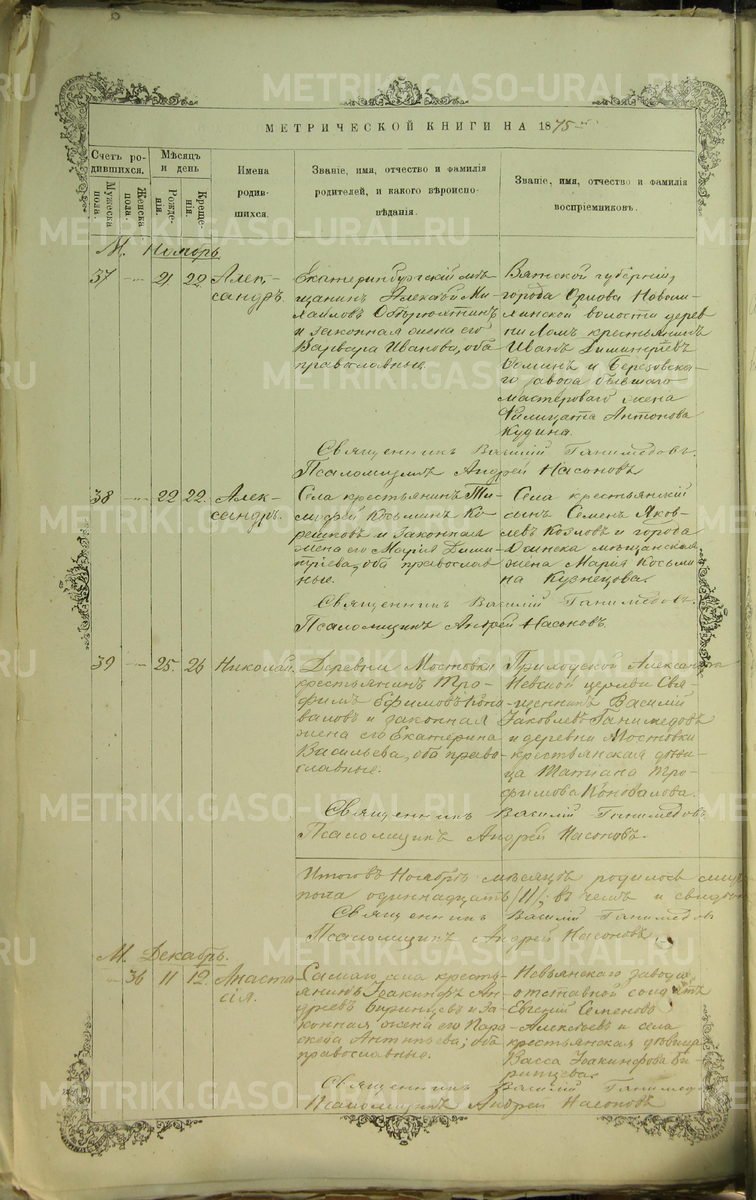 МЕТРИЧЕСКОЙ КНИГИ НА 1875
Счетъ родившихся.
Мужеска пола.
Женска пола.
Мѣсяцъ и день
Рожденія.
Крещенія.
Имена родившихся.
Званіе, имя, отчество и фамилія родителей, и какого вѣроисповѣданія.
Званіе, имя, отчество и фамилія воспріемниковъ.
М. Ноябрь
37 21 22 Алек-
сандръ
Екатеринбургскій мѣ-
щанинъ Алексѣй Ми-
хайловъ
и законная жена его
Варвара Иванова, оба
православные.
Вятской губерніи,
города Орлова
волости дерев
ни Ломъ крестьянинъ
Иванъ Димитріевъ
и Березовска-
го завода бывшаго
мастероваго жена
Антонова
Кудина.
Священникъ Василій Ганимедовъ.
Псаломщикъ Андрей Насоновъ
38 22 22. Алек-
сандръ.
Села крестьянинъ Ти-
мофей Косьминъ
и законная
жена его Марія Дими-
тріева, оба православ
ные.
Села крестьянскій
сынъ Семенъ Яков-
левъ Козловъ и города
мѣщанская
жена Марія Косьми
на Кузнецова.
Священникъ Василій Ганимедовъ.
Псаломщикъ Андрей Насоновъ.
39 25. 26 Николай.
Деревни Мостовки
крестьянинъ Тро-
фимъ Ефимовъ Коно-
валовъ и законная
жена его Екатерина
Васильева, оба право-
славные.
Приходской Александро
Невской церкви Свя-
щенникъ Василій
Яковлевъ Ганимедовъ
и деревни Мостовки
крестьянская дѣви-
ца Татіана Тро-
фимова Коновалова.
Священникъ Василій Ганимедовъ
Псаломщикъ Андрей Насоновъ.
Итого въ Ноябрѣ мѣсяцѣ родилось
пола одиннадцать /11/; въ чемъ и
Священникъ Василій Ганимедовъ
Псаломщикъ Андрей Насоновъ.
М. Декабрь.
36 11 12. Анаста-
сія.
Самаго села кресть-
янинъ Іоакинфъ Ан-
дреевъ Бирицевъ и за-
конная жена его Пара-
скева Антипьева; оба
православные.
Невьянскаго завода
отставной солдатъ
Евгеній Семеновъ
Алексѣевъ и села
крестьянская дѣвица
Васса Іоакинфова Би-
рицева.
Священникъ Василій Ганимедовъ
Псаломщикъ Андрей Насоновъ
METRIKI.GASO-URAL.RU